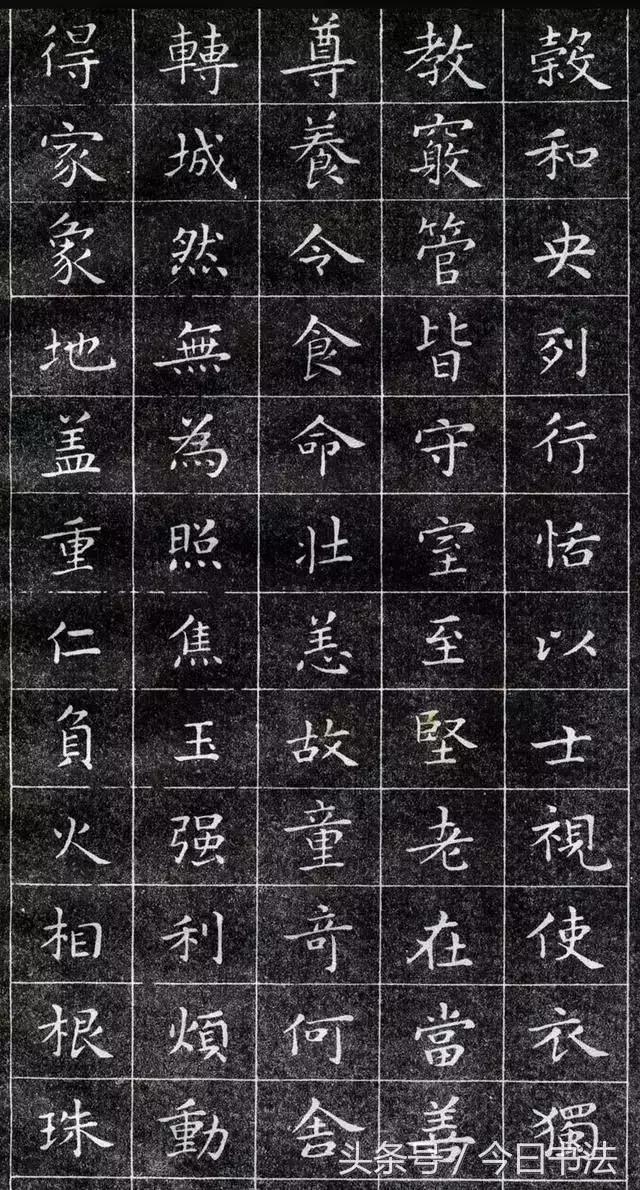 穀和央列行恬以士視使衣獨
教竅管皆守室至堅老在當善
尊養令食命壯恙故童奇何舍
轉城然無為照焦玉强利煩動
得家象地盖重仁負火相根珠
头条号 / 今日书法